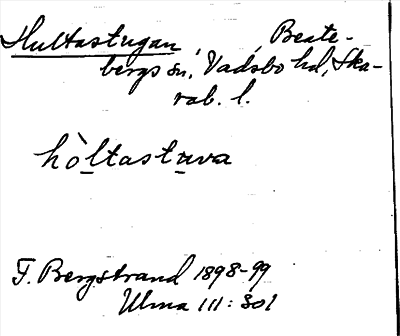 Hultastugan, Beate-
bergs sn, Vadsbo hd, Ska-
rab. l.
hòltastuva
F. Bergstrand 1898-99
Ulma 111: 301